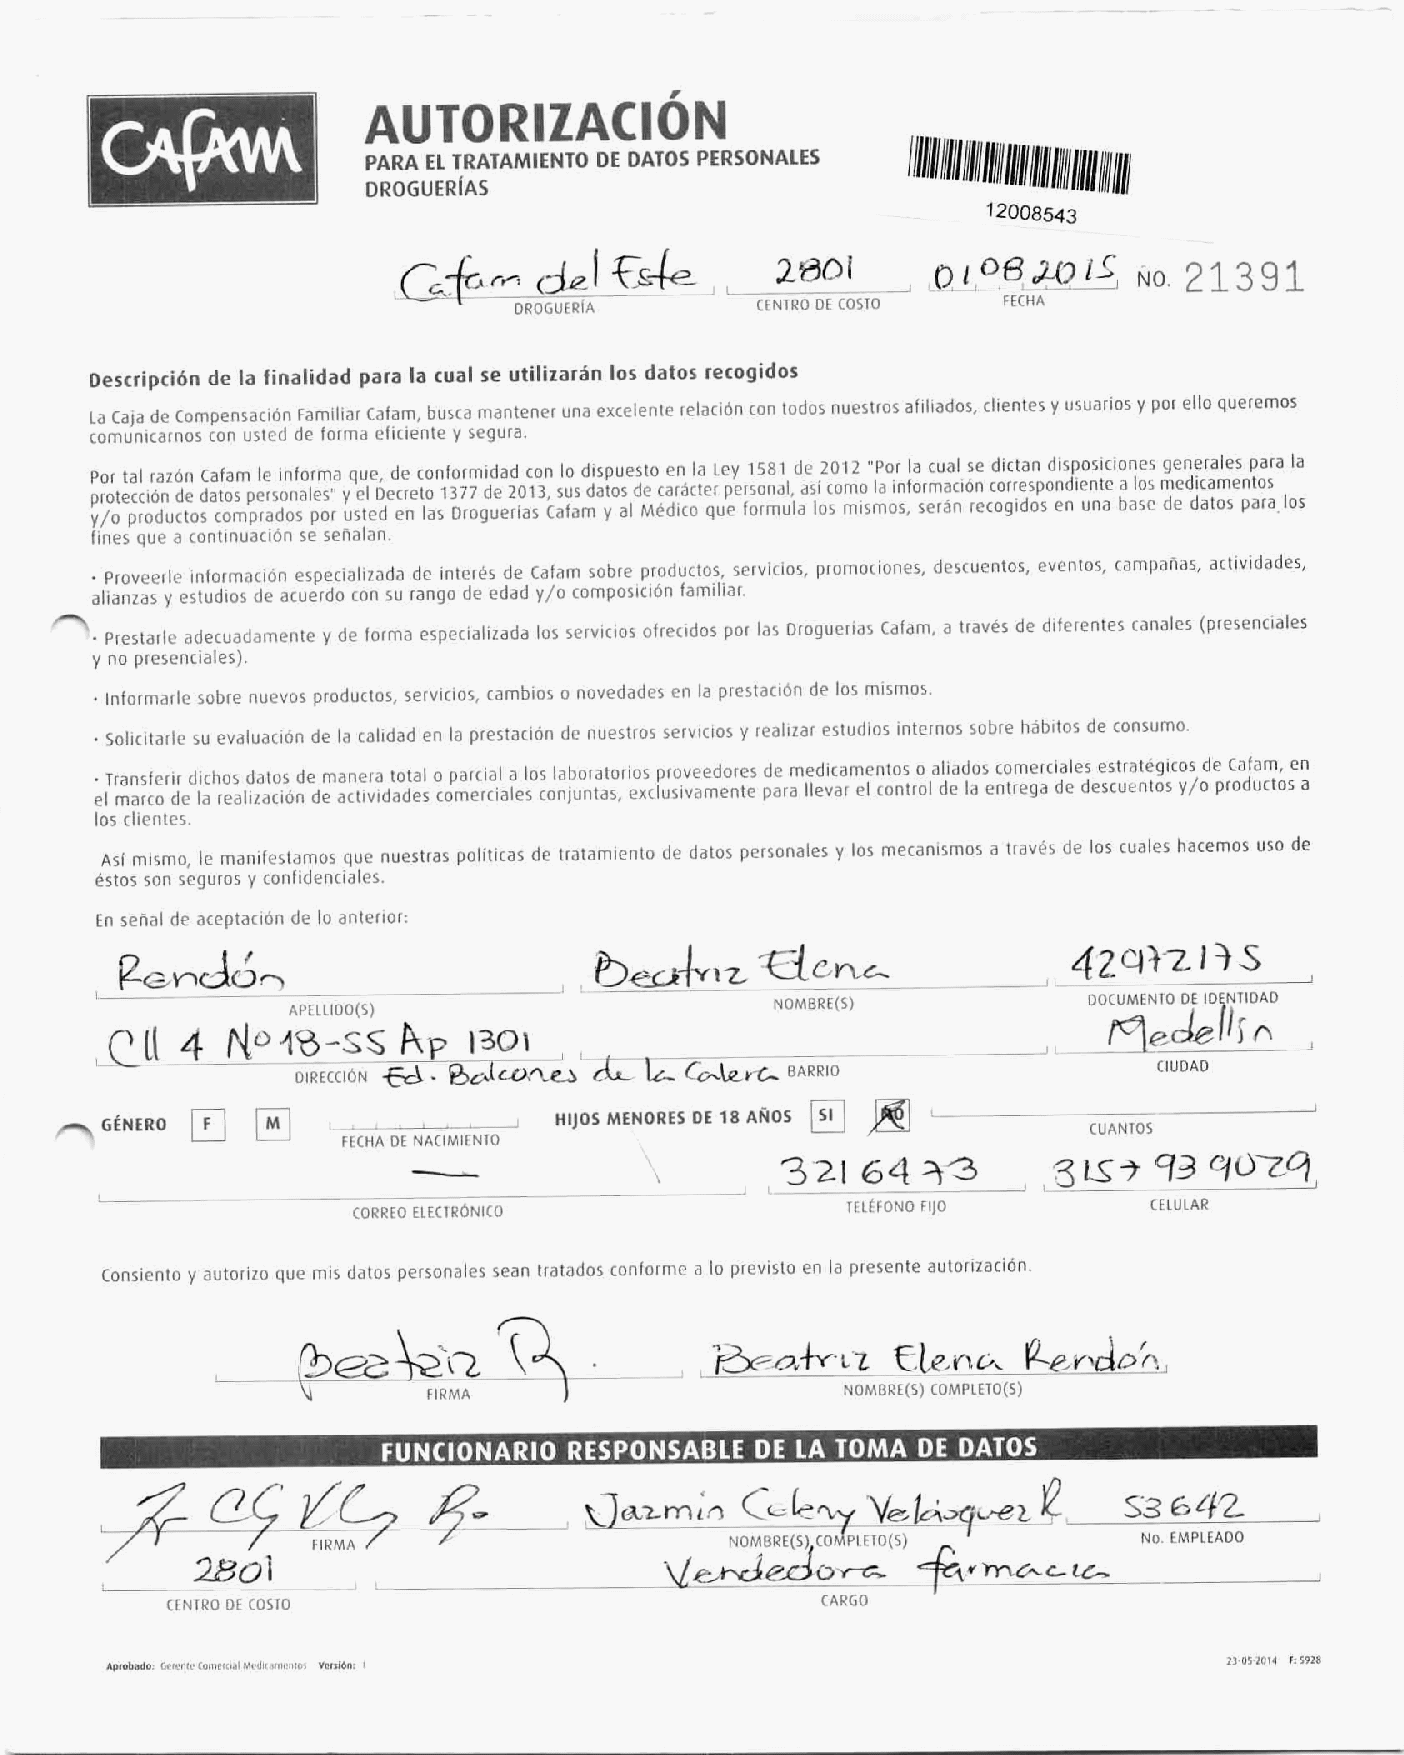 CAFAM
AUTORIZACIÓN
PARA EL TRATAMIENTO DE DATOS PERSONALES
DROGUERÍAS
12008543
Cafam del Este 2801 01 08 2015 NO. 21391
DROGUERÍA CENTRO DE COSTO FECHA
Descripción de la finalidad para la cual se utilizarán los datos recogidos
La Caja de Compensación Familiar Cafam, busca mantener una excelente relación con todos nuestros afiliados, clientes y usuarios y por ello queremos
comunicarnos con usted de forma eficiente y segura.
Por tal razón Cafam le informa que, de conformidad con lo dispuesto en la Ley 1581 de 2012 "Por la cual se dictan disposiciones generales para la
protección de datos personales" y el Decreto 1377 de 2013, sus datos de carácter personal, así como la información correspondiente a los medicamentos
y/o productos comprados por usted en las Droguerías Cafam y al Médico que formula los mismos, serán recogidos en una base de datos para los
fines que a continuación se señalan.
· Proveerle información especializada de interés de Cafam sobre productos, servicios, promociones, descuentos, eventos, campañas, actividades,
alianzas y estudios de acuerdo con su rango de edad y/o composición familiar.
· Prestarle adecuadamente y de forma especializada los servicios ofrecidos por las Droguerías Cafam, a través de diferentes canales (presenciales
y no presenciales).
· Informarle sobre nuevos productos, servicios, cambios o novedades en la prestación de los mismos.
· Solicitarle su evaluación de la calidad en la prestación de nuestros servicios y realizar estudios internos sobre hábitos de consumo.
· Transferir dichos datos de manera total o parcial a los laboratorios proveedores de medicamentos o aliados comerciales estratégicos de Cafam, en
el marco de la realización de actividades comerciales conjuntas, exclusivamente para llevar el control de la entrega de descuentos y/o productos a
los clientes.
Así mismo, le manifestamos que nuestras políticas de tratamiento de datos personales y los mecanismos a través de los cuales hacemos uso de
éstos son seguros y confidenciales.
En señal de aceptación de lo anterior:
Rendón Beatriz Elena 42972175
APELLIDO(S) NOMBRE(S) DOCUMENTO DE IDENTIDAD
Cll 4 No 18-55 Ap 1301 Medellin
DIRECCIÓN Ed. Balcones de la Calera BARRIO CIUDAD
GÉNERO F M HIJOS MENORES DE 18 AÑOS SI NO
FECHA DE NACIMIENTO CUANTOS
— 3216473 3157939029
CORREO ELECTRÓNICO TELÉFONO FIJO CELULAR
Consiento y autorizo que mis datos personales sean tratados conforme a lo previsto en la presente autorización.
Beatriz R. Beatriz Elena Rendón
FIRMA NOMBRE(S) COMPLETO(S)
FUNCIONARIO RESPONSABLE DE LA TOMA DE DATOS
Jazmin Celeny Velásquez R 53642
FIRMA NOMBRE(S) COMPLETO(S) No. EMPLEADO
2801 Vendedora farmacia
CENTRO DE COSTO CARGO
Aprobado: Gerente Comercial Medicamentos Versión: 1 23-05-2014 F: 5928